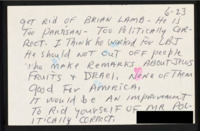 6-23
GET RID OF BRIAN LAMB - HE IS
TOO PARTISAN - TOO POLITICALLY COR-
RECT. I THINK HE WORKED FOR LBJ
HE SHOULD NOT CUT OFF PEOPLE
WHO MAKE REMARKS ABOUT JEWS
FRUITS & ISRAEL. NONE OF THEM
GOOD FOR AMERICA.
IT WOULD BE AN IMPROVEMENT
TO RID YOURSELF OF MR POL-
ITICALLY CORRECT.